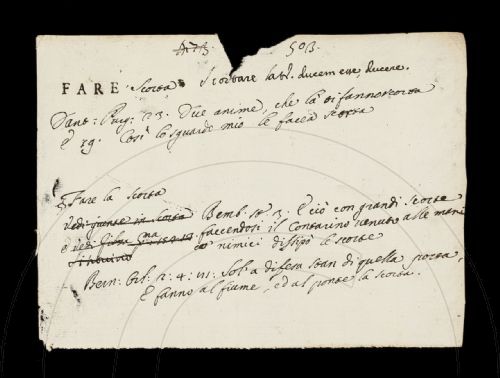 503.
FARE Scorta Scortare lat. ducem esse, ducere.
Dant: Purg: 23. Due anime, che là ti fanno scorta
E 19. Così lo sguardo mio le facea scorta
Fare la scorta
Bemb. St. 3. E ciò con grandi scorte
e faccendosi il Contarino venuto alle mani
co nimici dissipò le scorte
Bern: Orl: 2: 4: 41: Sol' a difesa stan di quella porta,
E fanno al fiume, ed al ponte la scorta.